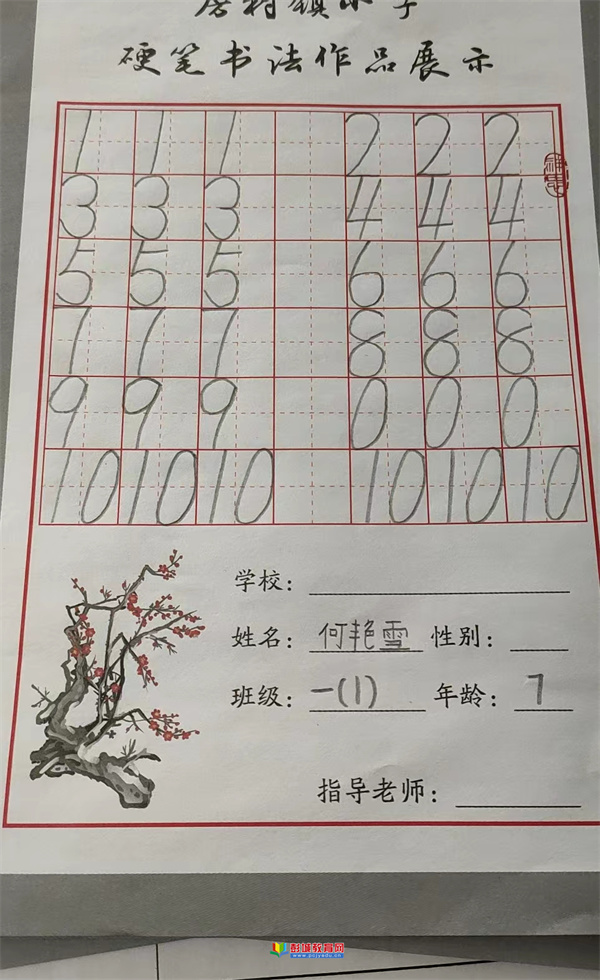 房村镇小学
硬笔书法作品展示
1 1 1 2 2 2
3 3 3 4 4 4
5 5 5 6 6 6
7 7 7 8 8 8
9 9 9 0 0 0
10 10 10 10 10 10
学校：
姓名：何艳雪 性别：
班级：一(1) 年龄：7
指导老师：
彭城教育网
www.pcjyedu.cn